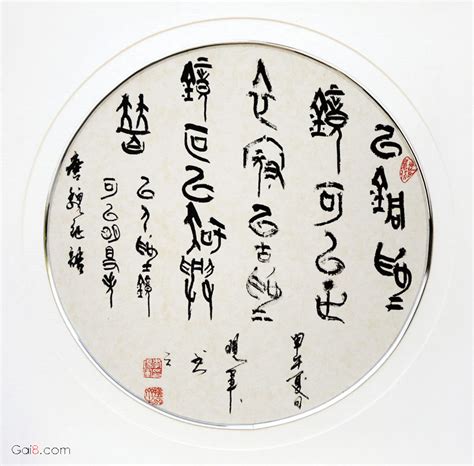 以銅為
鏡可以正
衣冠以古為
鏡可以知興
替
以人為鏡
可以明得失
唐魏徵語
甲午夏月
書
Gai8.com